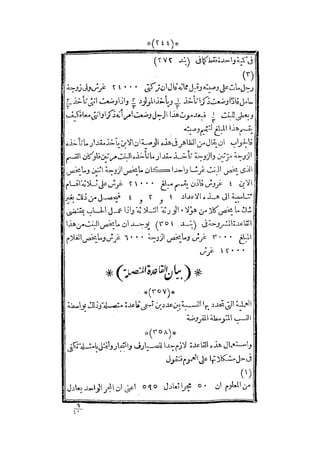 *(٢٤٤)*
فى كمية واحدة فقط كما فى (بند ٢٧٢)
(٣)
رجل مات على وصيته وقبل مماته قال ان تركتى ٢١٠٠٠ غرش ولى زوجة
حامل فاذا وضعت ذكرا تأخذ ويأخذ المولود واذا وضعت انثى تأخذ
ويعطى للبنت فبعد موت هذا الرجل وضعت امرأته ذكرا وانثى معا فكيف
يقسم هذا المبلغ لتتميم وصيته
فالجواب ان يقال من الظاهر فى هذه الوصية ان الابن يأخذ مقدار ما تأخذه
الزوجة مرتين والزوجة تأخذ مقدار ما تأخذه البنت مرتين فلو كان القسم
الذى يخص البنت غرشا واحدا لكان ما يخص الزوجة اثنين وما يخص
الابن ٤ غروش فاذن يقسم مبلغ ٢١٠٠٠ غرش على ثلاثة اقسام
متناسبة الى هذه الاعداد ١ و ٢ و ٤ فيحصل من ذلك بغير
شك ما يخص كلا من هؤلاء الورثة الثلاثة واذا عمل الحساب بمقتضى
القاعدة المشروحة فى (بند ٣٥١) يوجد ان ما يخص البنت من هذا
المبلغ ٣٠٠٠ غرش وما يخص الزوجة ٦٠٠٠ غرش وما يخص الغلام
١٢٠٠٠ غرش
*(بيان القاعدة المتصلة)*
*(٣٥٧)*
العملية التى تتحدد بها النسبة بين عددين تسمى قاعدة متصلة وذلك بواسطة
النسب المتوسطة المفروضة
*(٣٥٨)*
واستعمال هذه القاعدة لازم جدا للصيارف والتجار وأمثل بامثلة تكفى
فى حل مشكلاتها على العموم فنقول
(١)
من المعلوم ان ٥٠ مجرا تعادل ٥٩٥ اعنى ان المجر الواحد يعادل